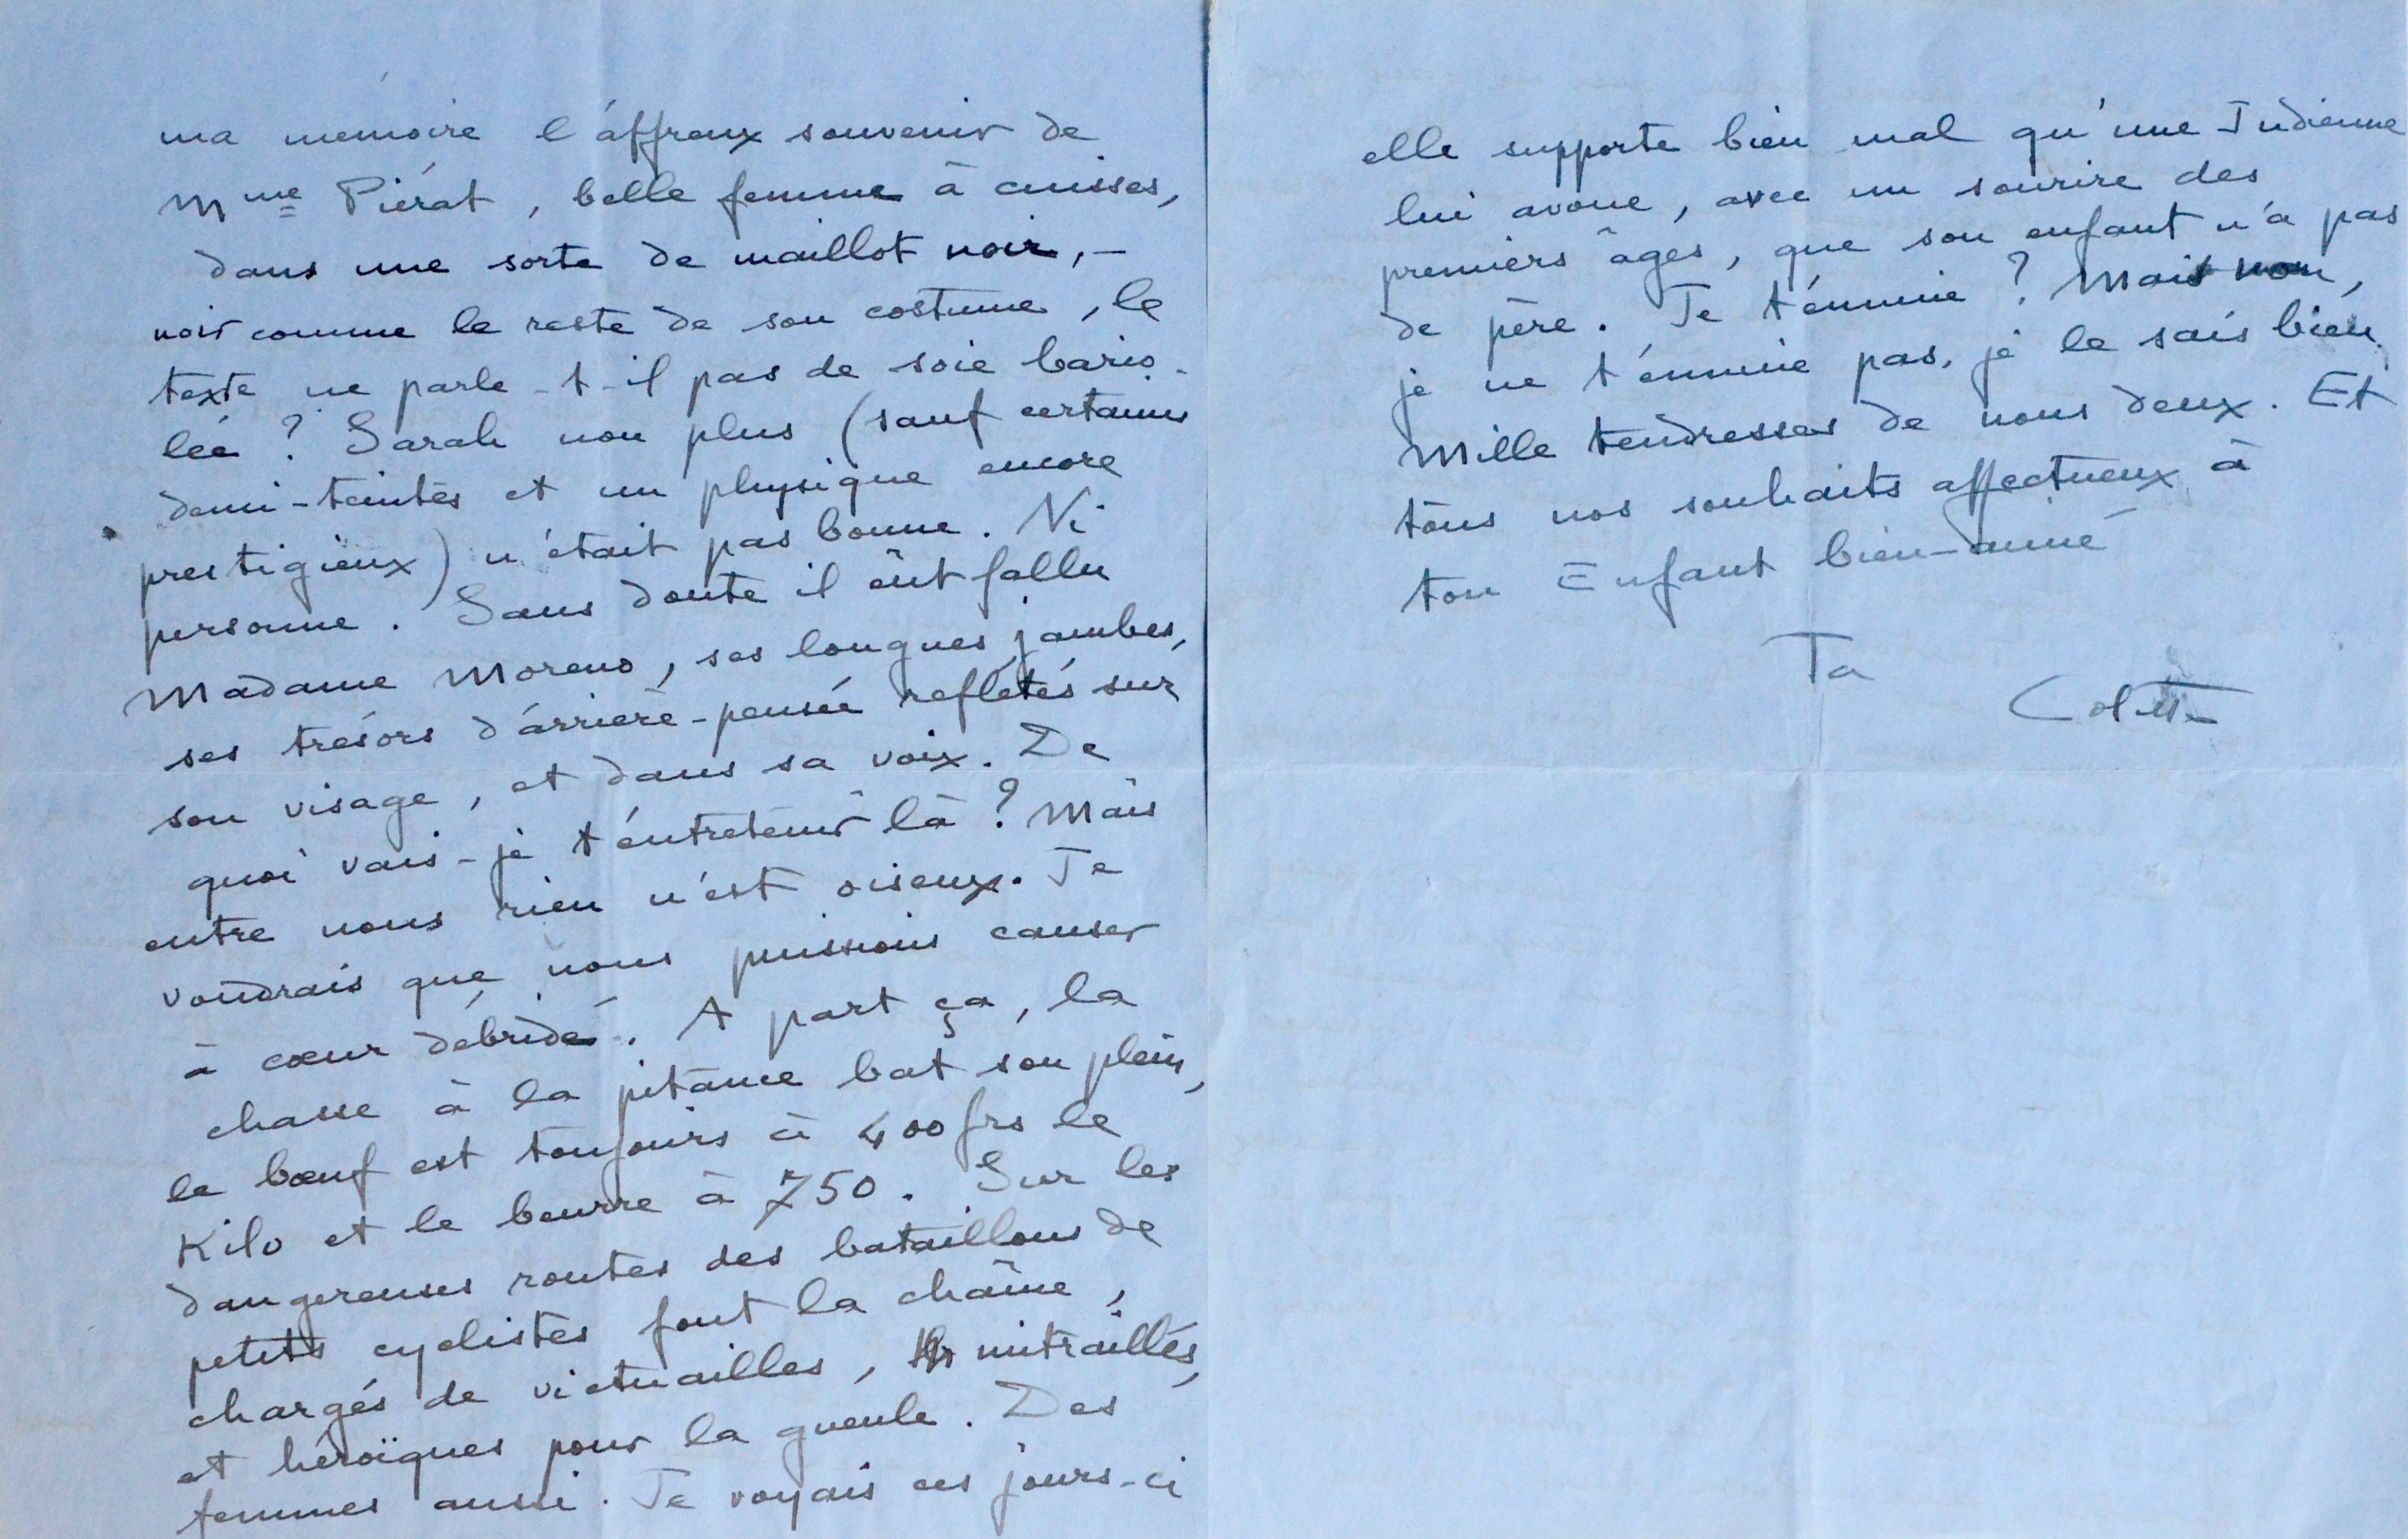 ma mémoire l'affreux souvenir de
Mme Piérat, belle femme à cuisses,
dans une sorte de maillot noir, –
noir comme le reste de son costume, le
texte ne parle-t-il pas de soie bario-
lée ? Sarah non plus (sauf certaines
demi-teintes et un physique encore
prestigieux) n'était pas bonne. Ni
personne. Sans doute il eût fallu
Madame Moreno, ses longues jambes,
ses trésors d'arrière-pensée reflétés sur
son visage, et dans sa voix. De
quoi vais-je t'entretenir là ? Mais
entre nous rien n'est oiseux. Je
voudrais que nous puissions causer
à cœur débridé. A part ça, la
chasse à la pitance bat son plein,
le bœuf est toujours à 400 frs le
Kilo et le beurre à 750. Sur les
dangereuses routes des bataillons de
petits cyclistes font la chaîne,
chargés de victuailles, mitraillés,
et héroïques pour la gueule. Des
femmes aussi. Je voyais ces jours-ci
elle supporte bien mal qu'une Indienne
lui avoue, avec un sourire des
premiers âges, que son enfant n'a pas
de père. Je t'ennuie ? Mais non,
je ne t'ennuie pas, je le sais bien.
Mille tendresses de nous deux. Et
tous nos souhaits affectueux à
ton Enfant bien-aimé
Ta
Colette